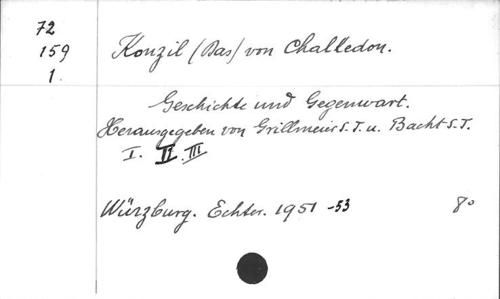 72
159
1.
Konzil (Das) von Chalkedon.
Geschichte und Gegenwart.
Herausgegeben von Grillmeier S.J. u. Bacht S.J.
I. II. III
Würzburg. Echter. 1951 -53 8°